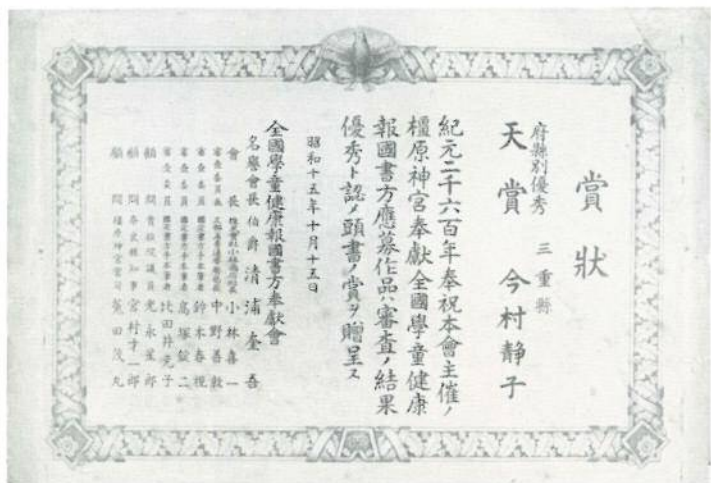 賞狀
府縣別優秀 三重縣
天賞 今村靜子
紀元二千六百年奉祝本會主催ノ
橿原神宮奉獻全國學童健康
報國書方應募作品ハ審査ノ結果
優秀ト認メ頭書ノ賞ヲ贈呈ス
昭和十五年十月十五日
全國學童健康報國書方奉獻會
名譽會長 伯爵 清浦奎吾
會長 小林喜一
審査委員長 中野善敦
審査委員 鈴木春視
審査委員 高塚錠二
審査委員 北田井元子
顧問 貴族院議員 光永星郎
顧問 奈良縣知事 宮村才一郎
顧問 橿原神宮宮司 菟田茂丸